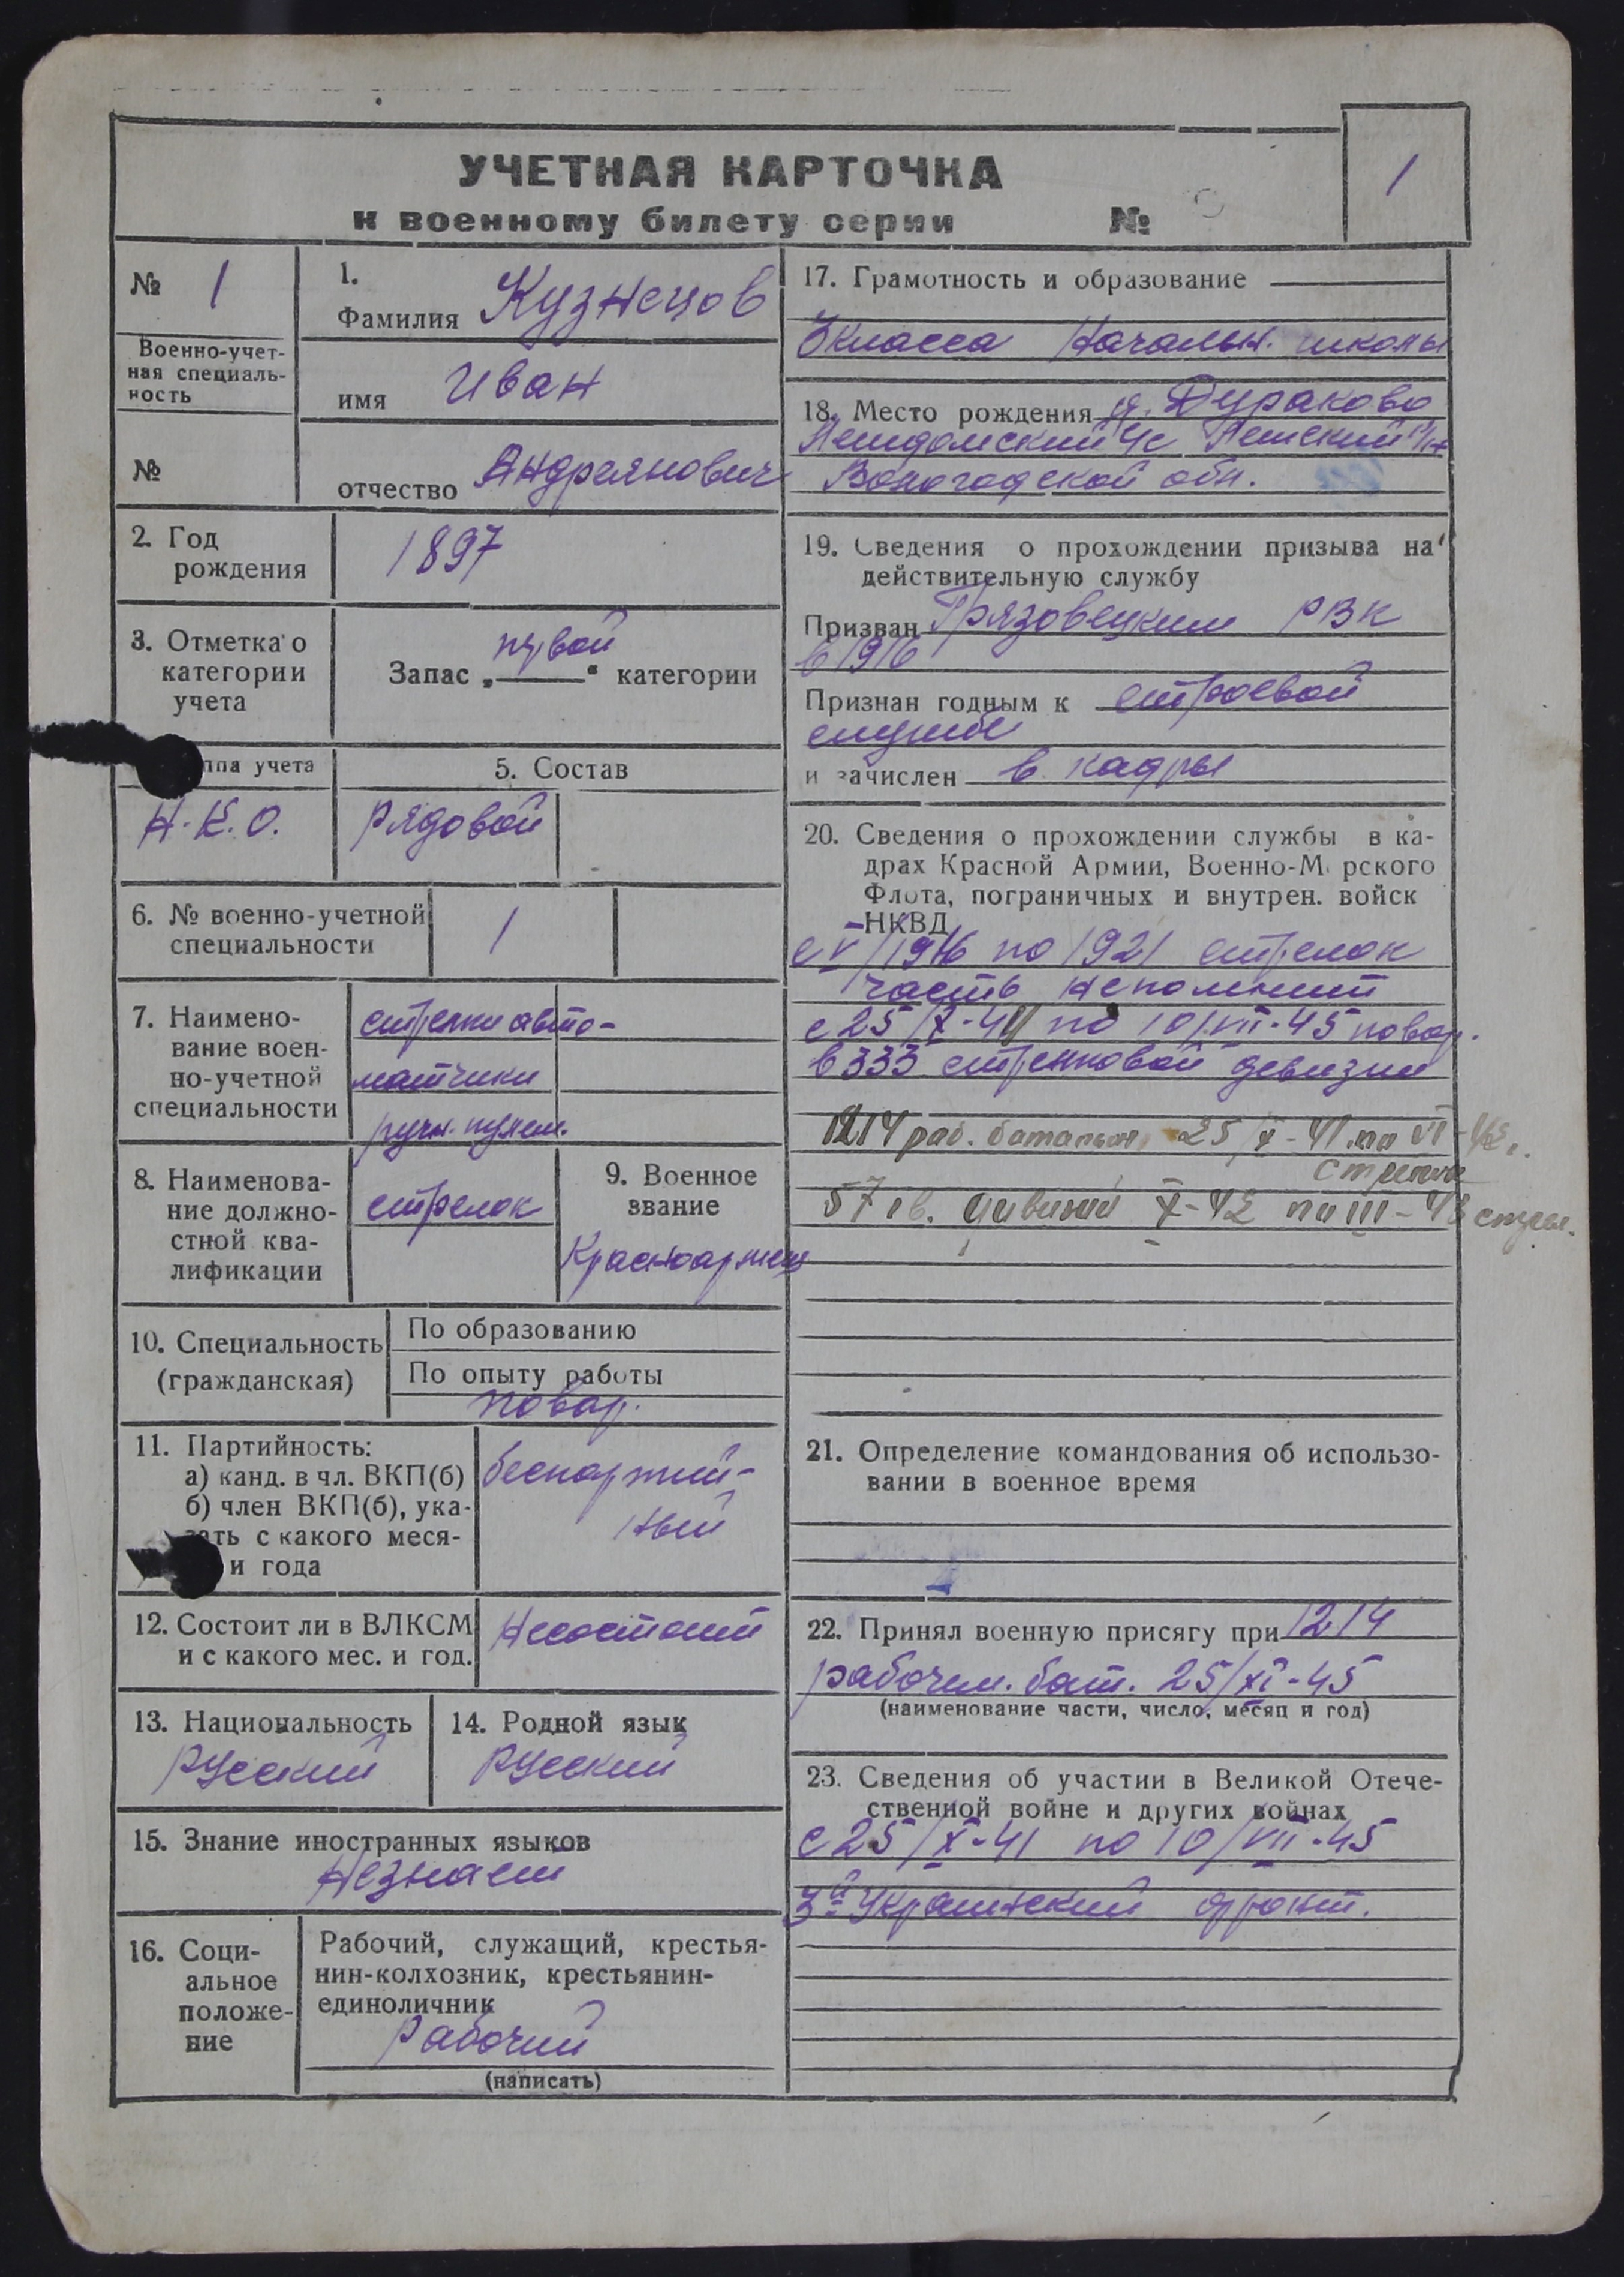 1
УЧЕТНАЯ КАРТОЧКА
к военному билету серии №
№ 1
Военно-учет-
ная специаль-
ность
№
1.
Фамилия Кузнецов
имя Иван
отчество Андреянович
2. Год
рождения
1897
3. Отметка о
категории
учета
Запас „первой“ категории
ппа учета
Н.К.О.
5. Состав
Рядовой
6. № военно-учетной
специальности
1
7. Наимено-
вание воен-
но-учетной
специальности
стрелки авто-
матчики
ручн. пулем.
8. Наименова-
ние должно-
стной ква-
лификации
стрелок
9. Военное
звание
Красноармеец
10. Специальность
(гражданская)
По образованию
По опыту работы
повар.
11. Партийность:
а) канд. в чл. ВКП(б)
б) член ВКП(б), ука-
зать с какого меся-
и года
беспартий-
ный
12. Состоит ли в ВЛКСМ
и с какого мес. и год.
Несостоит
13. Национальность
Русский
14. Родной язык
Русский
15. Знание иностранных языков
Незнает
16. Соци-
альное
положе-
ние
Рабочий, служащий, крестья-
нин-колхозник, крестьянин-
единоличник
Рабочий
(написать)
17. Грамотность и образование
3 класса Начальн. школы
18. Место рождения д. Дураково
Вологодской обл.
19. Сведения о прохождении призыва на
действительную службу
Призван Грязовецким РВК
в 1916
Признан годным к строевой
службе
и зачислен в кадры
20. Сведения о прохождении службы в ка-
драх Красной Армии, Военно-М рского
Флота, пограничных и внутрен. войск
НКВД
с V/1916 по 1921 стрелок
часть непомнит
с 25/X-41 по 10/VII-45 повар.
в 333 стрелковой девизии
1214 раб. батальон 25/X-41 по VI-42.
стрелок
57 гв. дивизии X-42 по III-43 стрел.
21. Определение командования об использо-
вании в военное время
22. Принял военную присягу при 1214
рабочем. бат. 25/XI-45
(наименование части, число, месяц и год)
23. Сведения об участии в Великой Отече-
ственной войне и других войнах
с 25/X-41 по 10/VII-45
3й Украинский фронт.